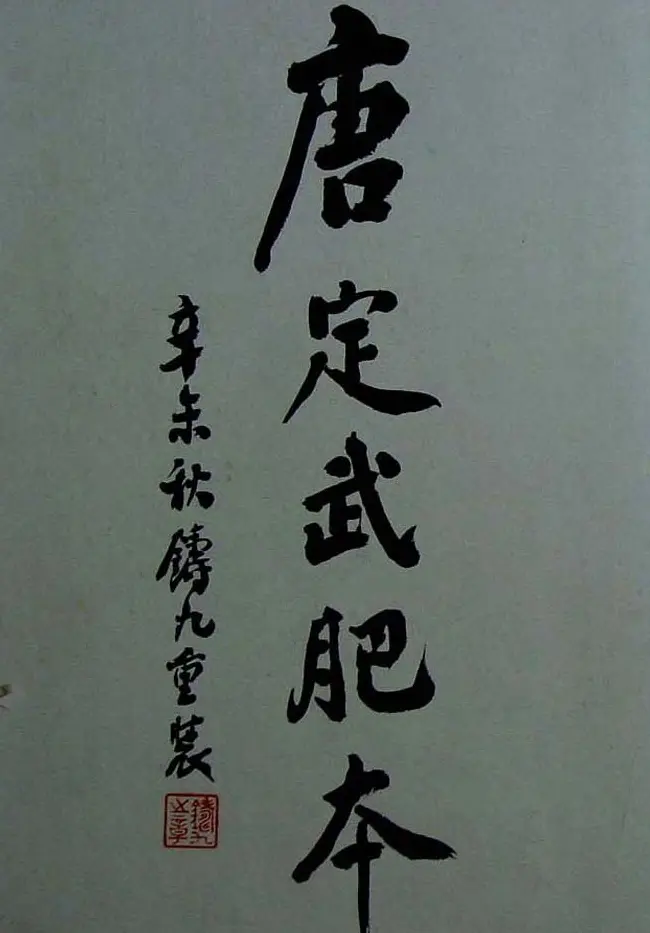 唐定武肥本
辛未秋鑄九重裝
鑄九之章